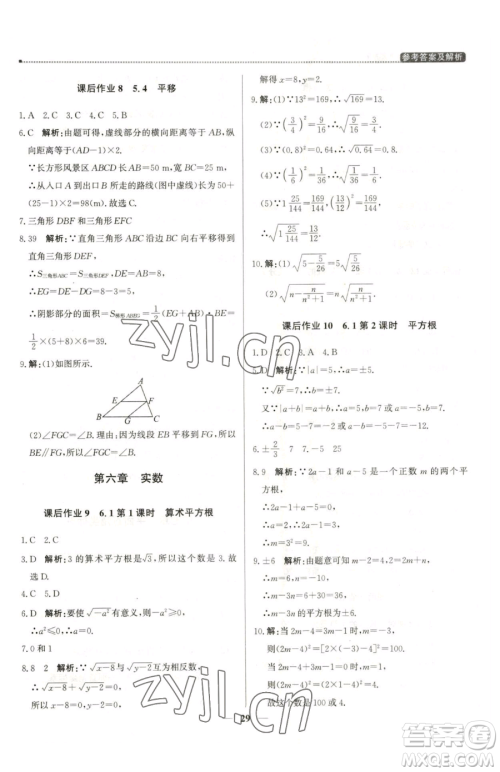 参考答案及解析
课后作业8 5.4 平移
1.A 2.C 3.C 4.A 5.C
6.C 解析:由题可得,虚线部分的横向距离等于AB,纵
向距离等于(AD-1)×2.
∵长方形风景区ABCD长AB=50米,宽BC=25米,
∴从入口A到出口B所走的路线(图中虚线)长为50+
(25-1)×2=98(m).故选C.
7.三角形DBF和三角形EFC
8.39 解析:∵直角三角形ABC沿边BC向右平移得到
直角三角形DEF,
∴S三角形ABC=S三角形DEF,DE=AB=8.
∴GE=DE-DG=8-3=5.
∴阴影部分的面积=S三角形ABC-S三角形GEC=S梯形ABEG=
1/2×(5+8)×6=39.
9.解:(1)如图所示.
A
E F
B G C
(2)∠FGC=∠B.理由如下:
∵BE∥FG,∴∠FGC=∠B.
第六章 实数
课后作业9 6.1第1课时 算术平方根
1.C 2.C
3.D 解析:3的算术平方根是√3,所以这个数是3.故
选D.
4.C
5.D
6.D 解析:∵√(-a²)有意义,则-a²≥0,
∴a²≤0,∴a=0.
7.0和1
8.8 2 解析:∵√(x-8)与√(y-2)互为相反数,
∴√(x-8)+√(y-2)=0.∴x-8=0,y-2=0.
解得x=8,y=2.
9.解:(1)∵13²=169,∴√169=13.
(2)∵(3/4)²=9/16,∴√(9/16)=3/4.
(3)∵(0.8)²=0.64,∴√0.64=0.8.
(4)∵(1/6)²=1/36,∴√(1/36)=1/6.
(5)∵1 25/144=169/144,(13/12)²=169/144,
∴√(1 25/144)=13/12.
10.解:(1)√(5-5/26)=5√(5/26)
(2)√(n-n/(n²+1))=n√(n/(n²+1))
课后作业10 6.1第2课时 平方根
1.D 2.C 3.A 4.B
5.D 解析:∵|a|=5,∴a=±5.
∵√(b²)=7,∴b=±7.
又∵|a+b|=a+b,∴a+b≥0.
∴a=±5,b=7.
∴a-b=-2或-12.
6.±2/3 7 7.-5 25
8.9 解析:∵2a-1和a-5是一个正数m的两个平
方根,
∴2a-1+a-5=0,∴a=2.
∴2a-1=3.∴m=3²=9.
9.±6 解析:由题意可知m-2=4,2m-n=3,
∴m=6,n=9.
∴√(m-n)²... 
10.解:当2m-4=3m-1时,m=-3,
则(2m-4)²=[2×(-3)-4]²=100.
当2m-4=-(3m-1)时,m=1,
则(2m-4)²=(2×1-4)²=4.
故这个数是100或4.
29
zyjl.cn
zyjl.cn
答案圈
MXQE.COM